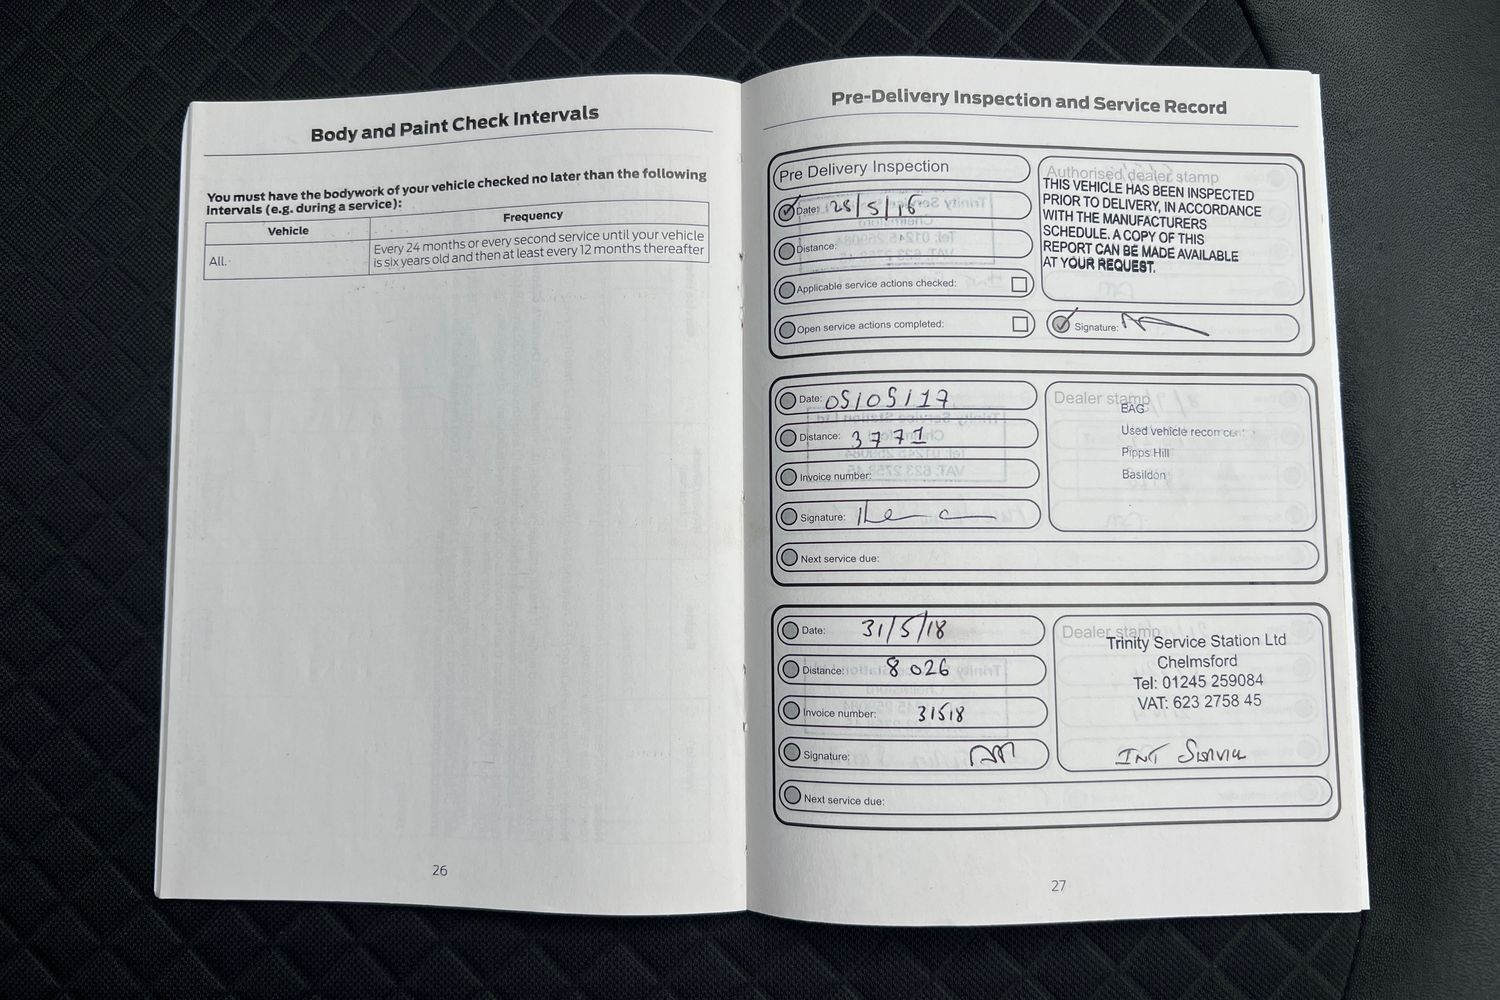 Body and Paint Check Intervals
You must have the bodywork of your vehicle checked no later than the following
intervals (e.g. during a service):
Vehicle
Frequency
All.
Every 24 months or every second service until your vehicle
is six years old and then at least every 12 months thereafter
26
Pre-Delivery Inspection and Service Record
Pre Delivery Inspection
Date: 28/5/16
Distance:
Applicable service actions checked:
Open service actions completed:
Authorised dealer stamp
THIS VEHICLE HAS BEEN INSPECTED
PRIOR TO DELIVERY, IN ACCORDANCE
WITH THE MANUFACTURERS
SCHEDULE. A COPY OF THIS
REPORT CAN BE MADE AVAILABLE
AT YOUR REQUEST.
Signature:
Date: 05/05/17
Distance: 3771
Invoice number:
Signature:
Next service due:
Dealer stamp
EAG
Used vehicle recon
Pipps Hill
Basildon
Date: 31/5/18
Distance: 8026
Invoice number: 31518
Signature:
Next service due:
Dealer stamp
Trinity Service Station Ltd
Chelmsford
Tel: 01245 259084
VAT: 623 2758 45
INT SERVICE
27